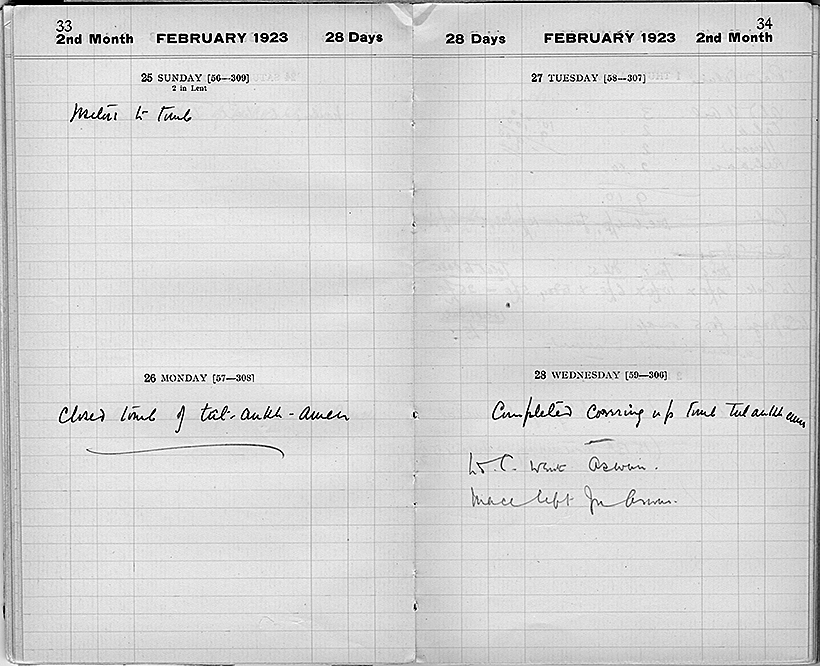 33
2nd Month FEBRUARY 1923 28 Days
25 SUNDAY [56—309]
2 in Lent
Visitors to tomb
26 MONDAY [57—308]
Closed tomb of tut-ankh-amen
34
28 Days FEBRUARY 1923 2nd Month
27 TUESDAY [58—307]
28 WEDNESDAY [59—306]
Completed covering up tomb Tutankhamen
Ld. C. went Aswan.
Mace left for Aswan.